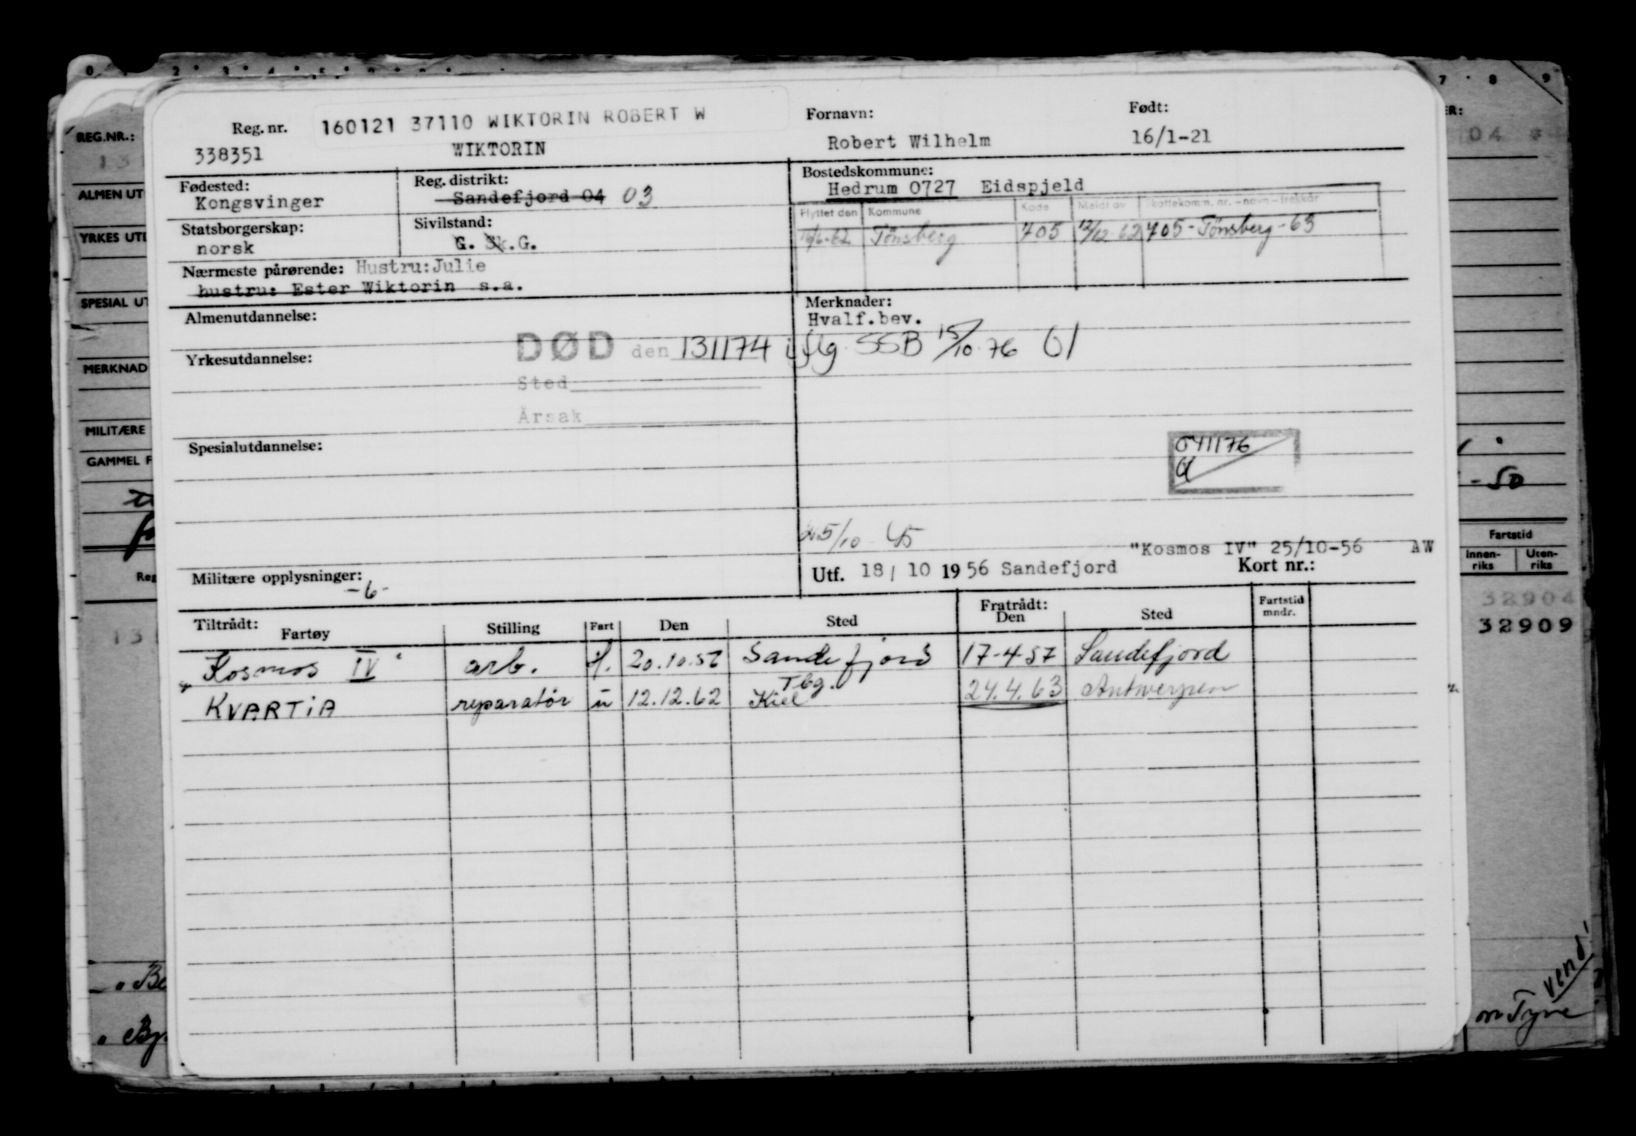 0 2 3 4 5 7 8 9
REG.NR.: 13
ALMEN UT
YRKES UTD
SPESIAL UT
MERKNAD
MILITÆRE
GAMMEL F
Reg. nr. 160121 37110 WIKTORIN ROBERT W
338351 WIKTORIN
Fornavn: Født:
Robert Wilhelm 16/1-21
Fødested: Reg. distrikt: Bostedskommune:
Kongsvinger Sandefjord 04 03 Hedrum 0727 Eidspjeld
Statsborgerskap: Sivilstand: Flyttet den Kommune Kode Meldt av Skattekomm. nr. - navn - trekkår
norsk G. Sk. G. Tønsberg 705 12/12-62 705-Tønsberg-63
Nærmeste pårørende: Hustru: Julie
hustru: Ester Wiktorin s.a.
Almenutdannelse: Merknader:
Hvalf.bev.
Yrkesutdannelse: DØD den 131174 iflg. SSB 15/10-76 Ul
Sted
Årsak
Spesialutdannelse:
041176
Ul
25/10
"Kosmos IV" 25/10-56 AW
Militære opplysninger: Utf. 18/10 1956 Sandefjord Kort nr.:
-6-
Tiltrådt: Fratrådt:
Fartøy Stilling Fart Den Sted Den Sted Fartstid mndr.
"Kosmos IV" arb. H. 20.10.56 Sandefjord 17-4-57 Sandefjord
Tbg.
KVARTIA reparatør u 12.12.62 Kiel 24.4.63 Antwerpen
R:
04
-50
Fartstid
Innen-riks Uten-riks
32904
32909
13
Reg
vend!
on Tyne